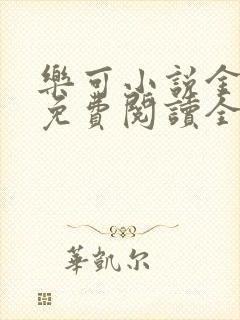 樂可小説全
免費閱讀全
華凱尔